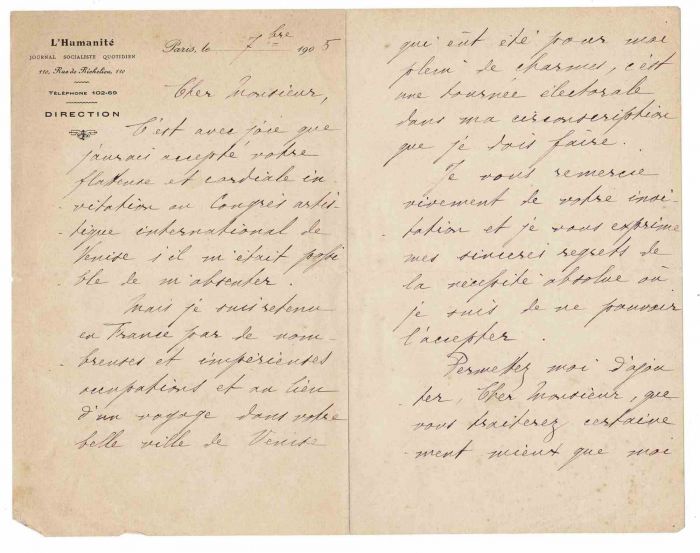 L'Humanité
JOURNAL SOCIALISTE QUOTIDIEN
110, Rue de Richelieu, 110
TÉLÉPHONE 102-69
DIRECTION
Paris, le 7bre 1905
Cher Monsieur,
C'est avec joie que
j'aurais accepté votre
flatteuse et cordiale in-
vitation au Congrès artis-
tique international de
Venise s'il m'était possi
ble de m'absenter.
Mais je suis retenu
en France par de nom-
breuses et impérieuses
occupations et au lieu
d'un voyage dans votre
belle ville de Venise
qui eût été pour moi
plein de charmes, c'est
une tournée électorale
dans ma circonscription
que je dois faire.
Je vous remercie
vivement de votre invi-
tation et je vous exprime
mes sincères regrets de
la nécessité absolue où
je suis de ne pouvoir
l'accepter.
Permettez moi d'ajou
ter, Cher Monsieur, que
vous traiterez certaine
ment mieux que moi